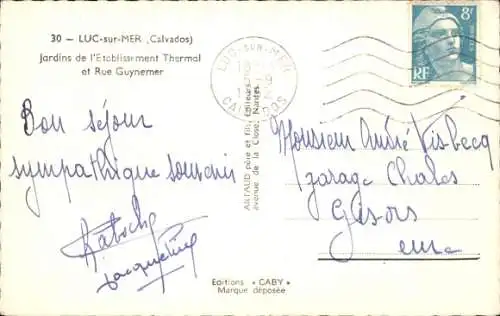 30 — LUC-sur-MER (Calvados)
Jardins de l'Etablissement Thermal
et Rue Guynemer
LUC-SUR-MER
CALVADOS
8f
RF
Bon séjour
sympathique souvenir
Jacqueline
ARTAUD père et fils Editeurs
avenue de la Close, Nantes
Editions "CABY"
Marque déposée
Monsieur André Visbecq
garage Charles
Gisors
Eure